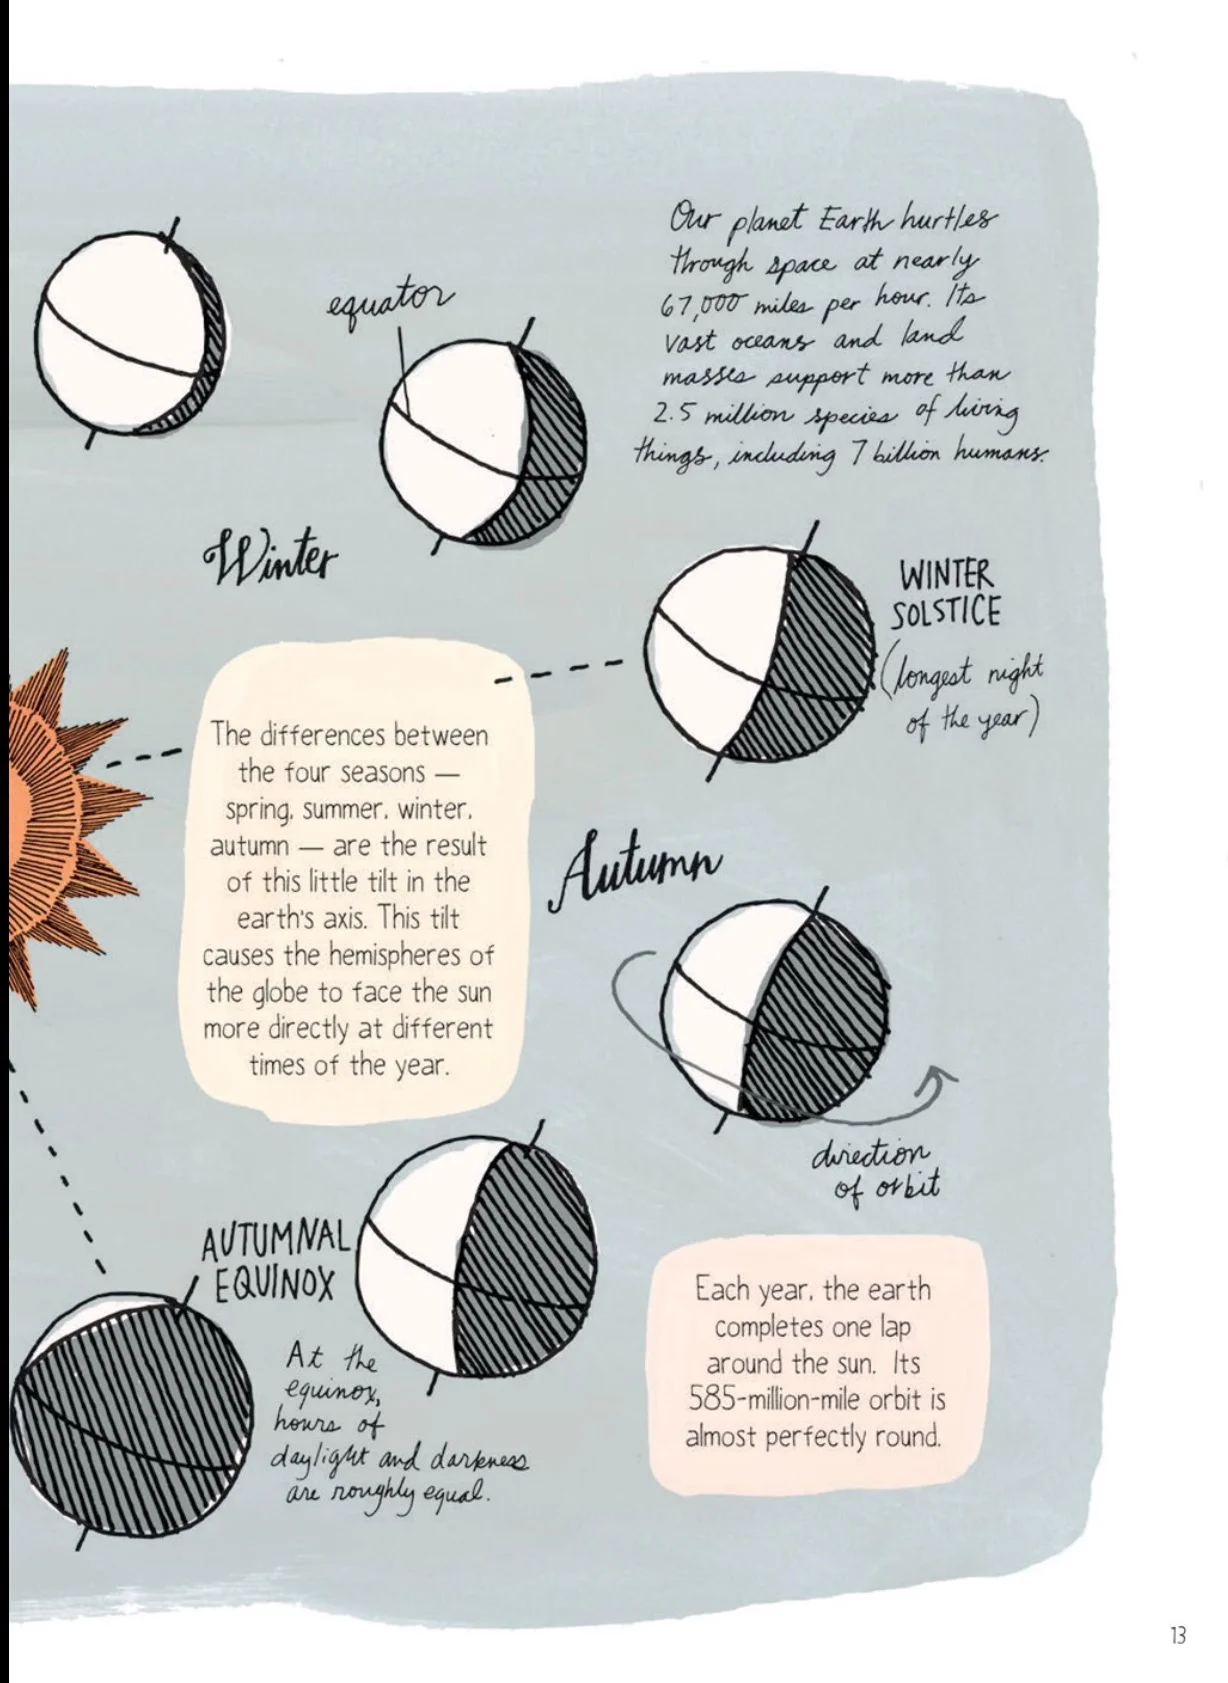 Our planet Earth hurtles
through space at nearly
67,000 miles per hour. Its
vast oceans and land
masses support more than
2.5 million species of living
things, including 7 billion humans.
equator
Winter
WINTER
SOLSTICE
(longest night
of the year)
The differences between
the four seasons —
spring, summer, winter,
autumn — are the result
of this little tilt in the
earth's axis. This tilt
causes the hemispheres of
the globe to face the sun
more directly at different
times of the year.
Autumn
direction
of orbit
AUTUMNAL
EQUINOX
At the
equinox,
hours of
daylight and darkness
are roughly equal.
Each year, the earth
completes one lap
around the sun. Its
585-million-mile orbit is
almost perfectly round.
13